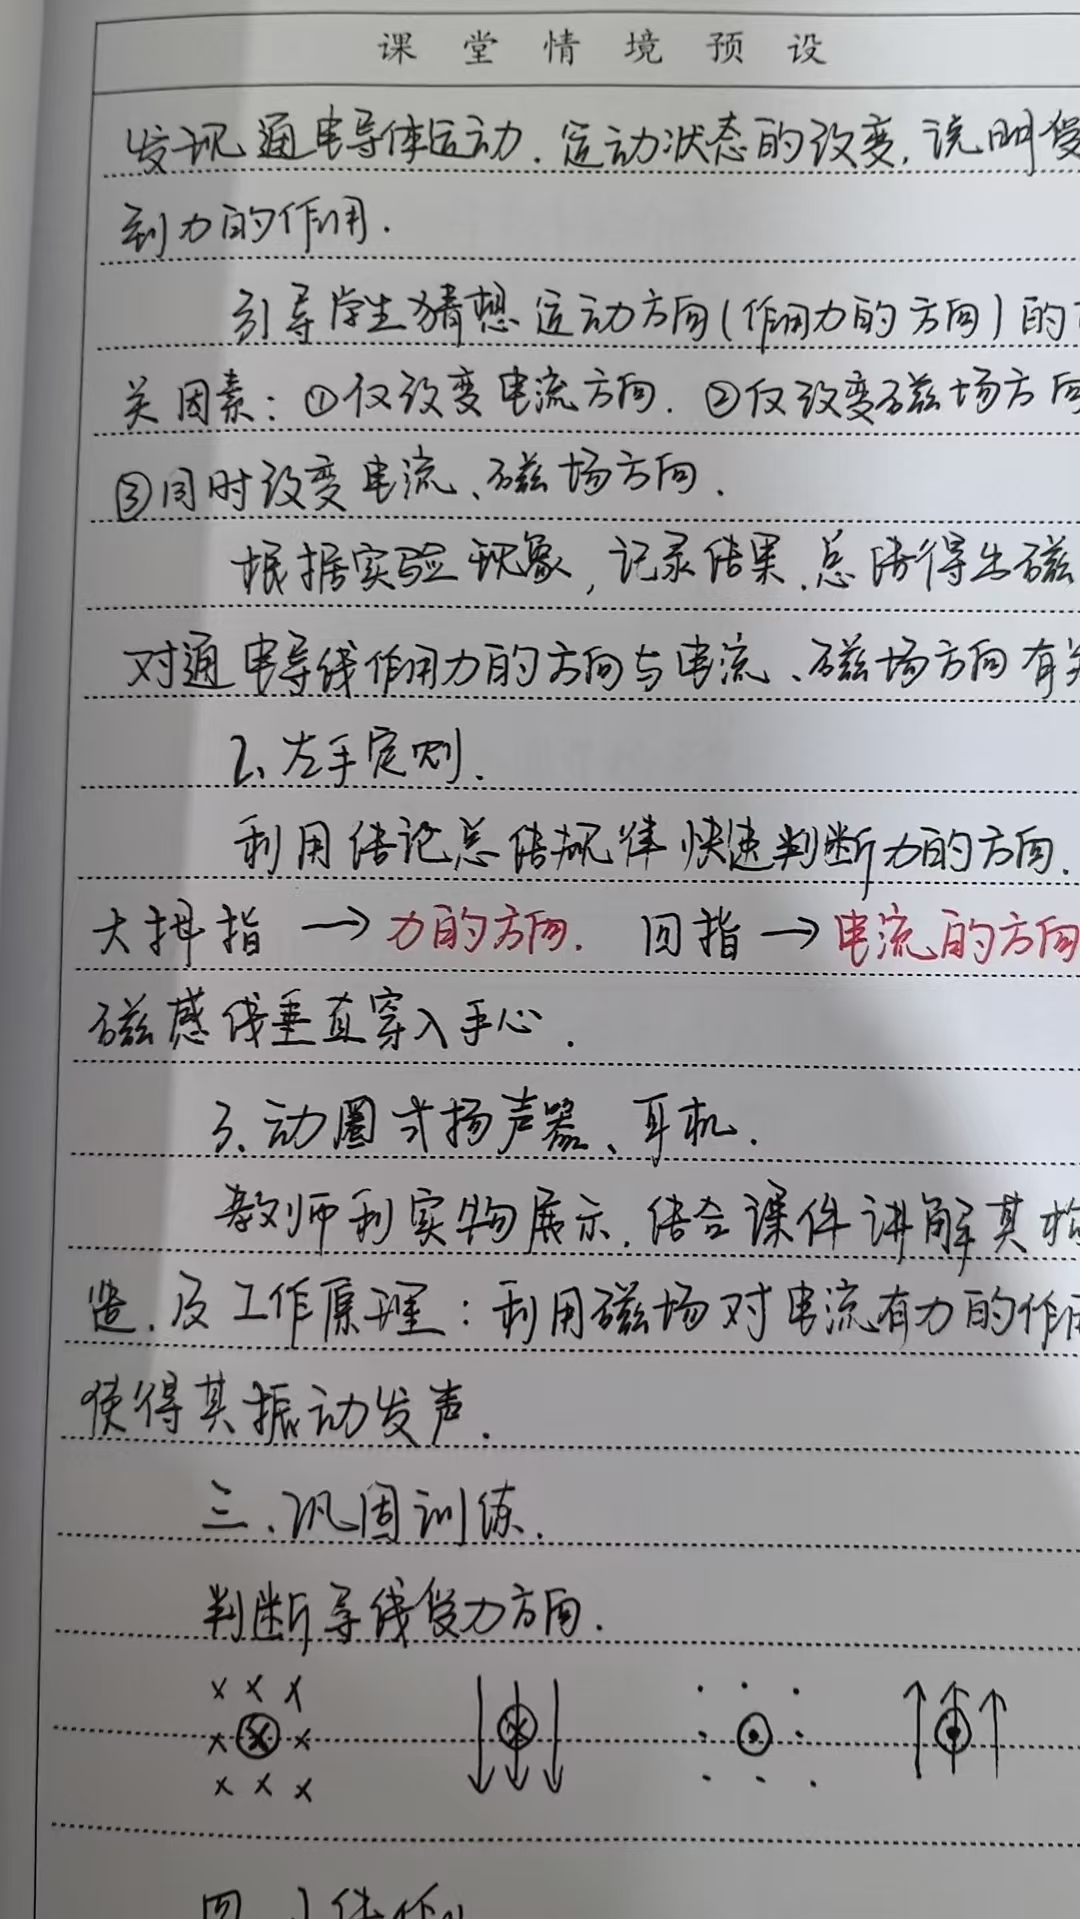 课堂情境预设
发现通电导体运动.运动状态的改变,说明受
到力的作用.
引导学生猜想运动方向(作用力的方向)的
关因素:①仅改变电流方向.②仅改变磁场方向
③同时改变电流、磁场方向.
根据实验现象,记录结果.总结得出磁
对通电导线作用力的方向与电流、磁场方向有关
2、左手定则.
利用结论总结规律快速判断力的方向.
大拇指→力的方向. 四指→电流的方向
磁感线垂直穿入手心.
3、动圈式扬声器、耳机.
教师利实物展示.结合课件讲解其构
造.及工作原理:利用磁场对电流有力的作用
使得其振动发声.
三.巩固训练.
判断导线受力方向.
四.小结作业